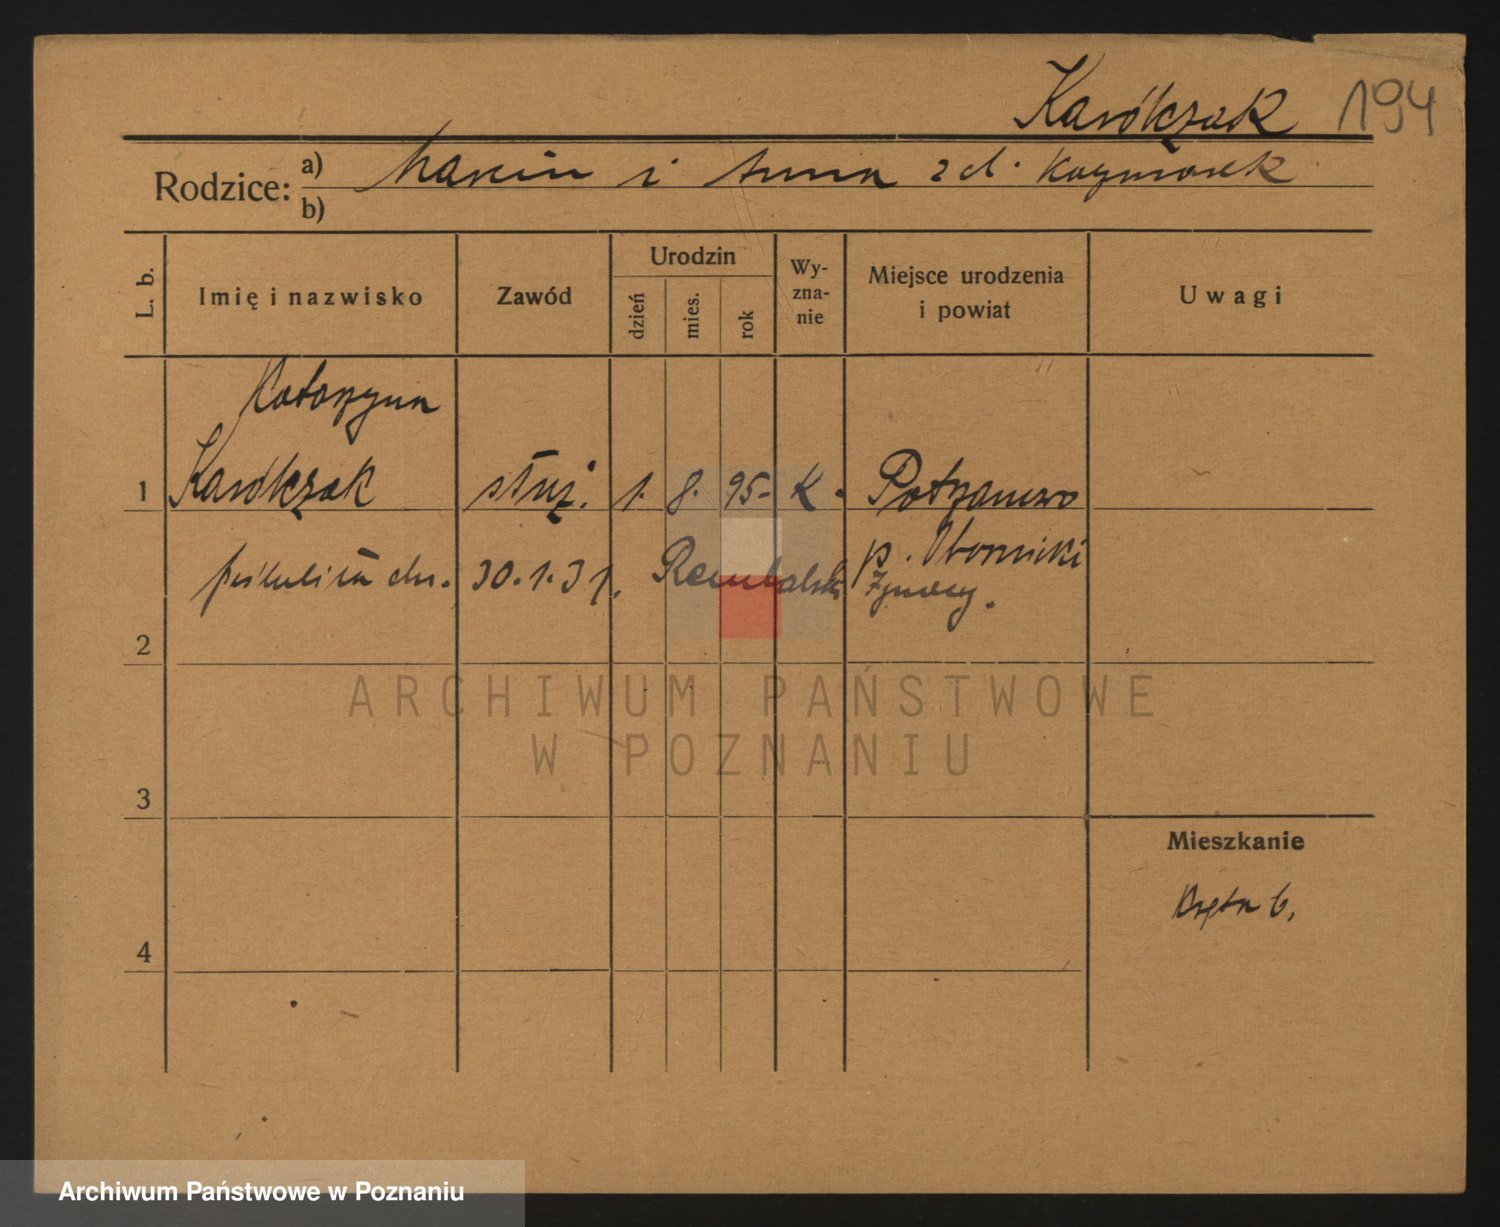 Karólczak 194
Rodzice: a) Marcin i Anna z d. Kaczmarek
b)
L. b. Imię i nazwisko Zawód Urodzin dzień mies. rok Wyznanie Miejsce urodzenia i powiat Uwagi
Katarzyna
1 Karólczak służ. 1. 8. 95- K. Potrzanowo
p. Oborniki
dn. 30.1.31.
2
ARCHIWUM PAŃSTWOWE
W POZNANIU
3
Mieszkanie
Kręta 6,
4
Archiwum Państwowe w Poznaniu